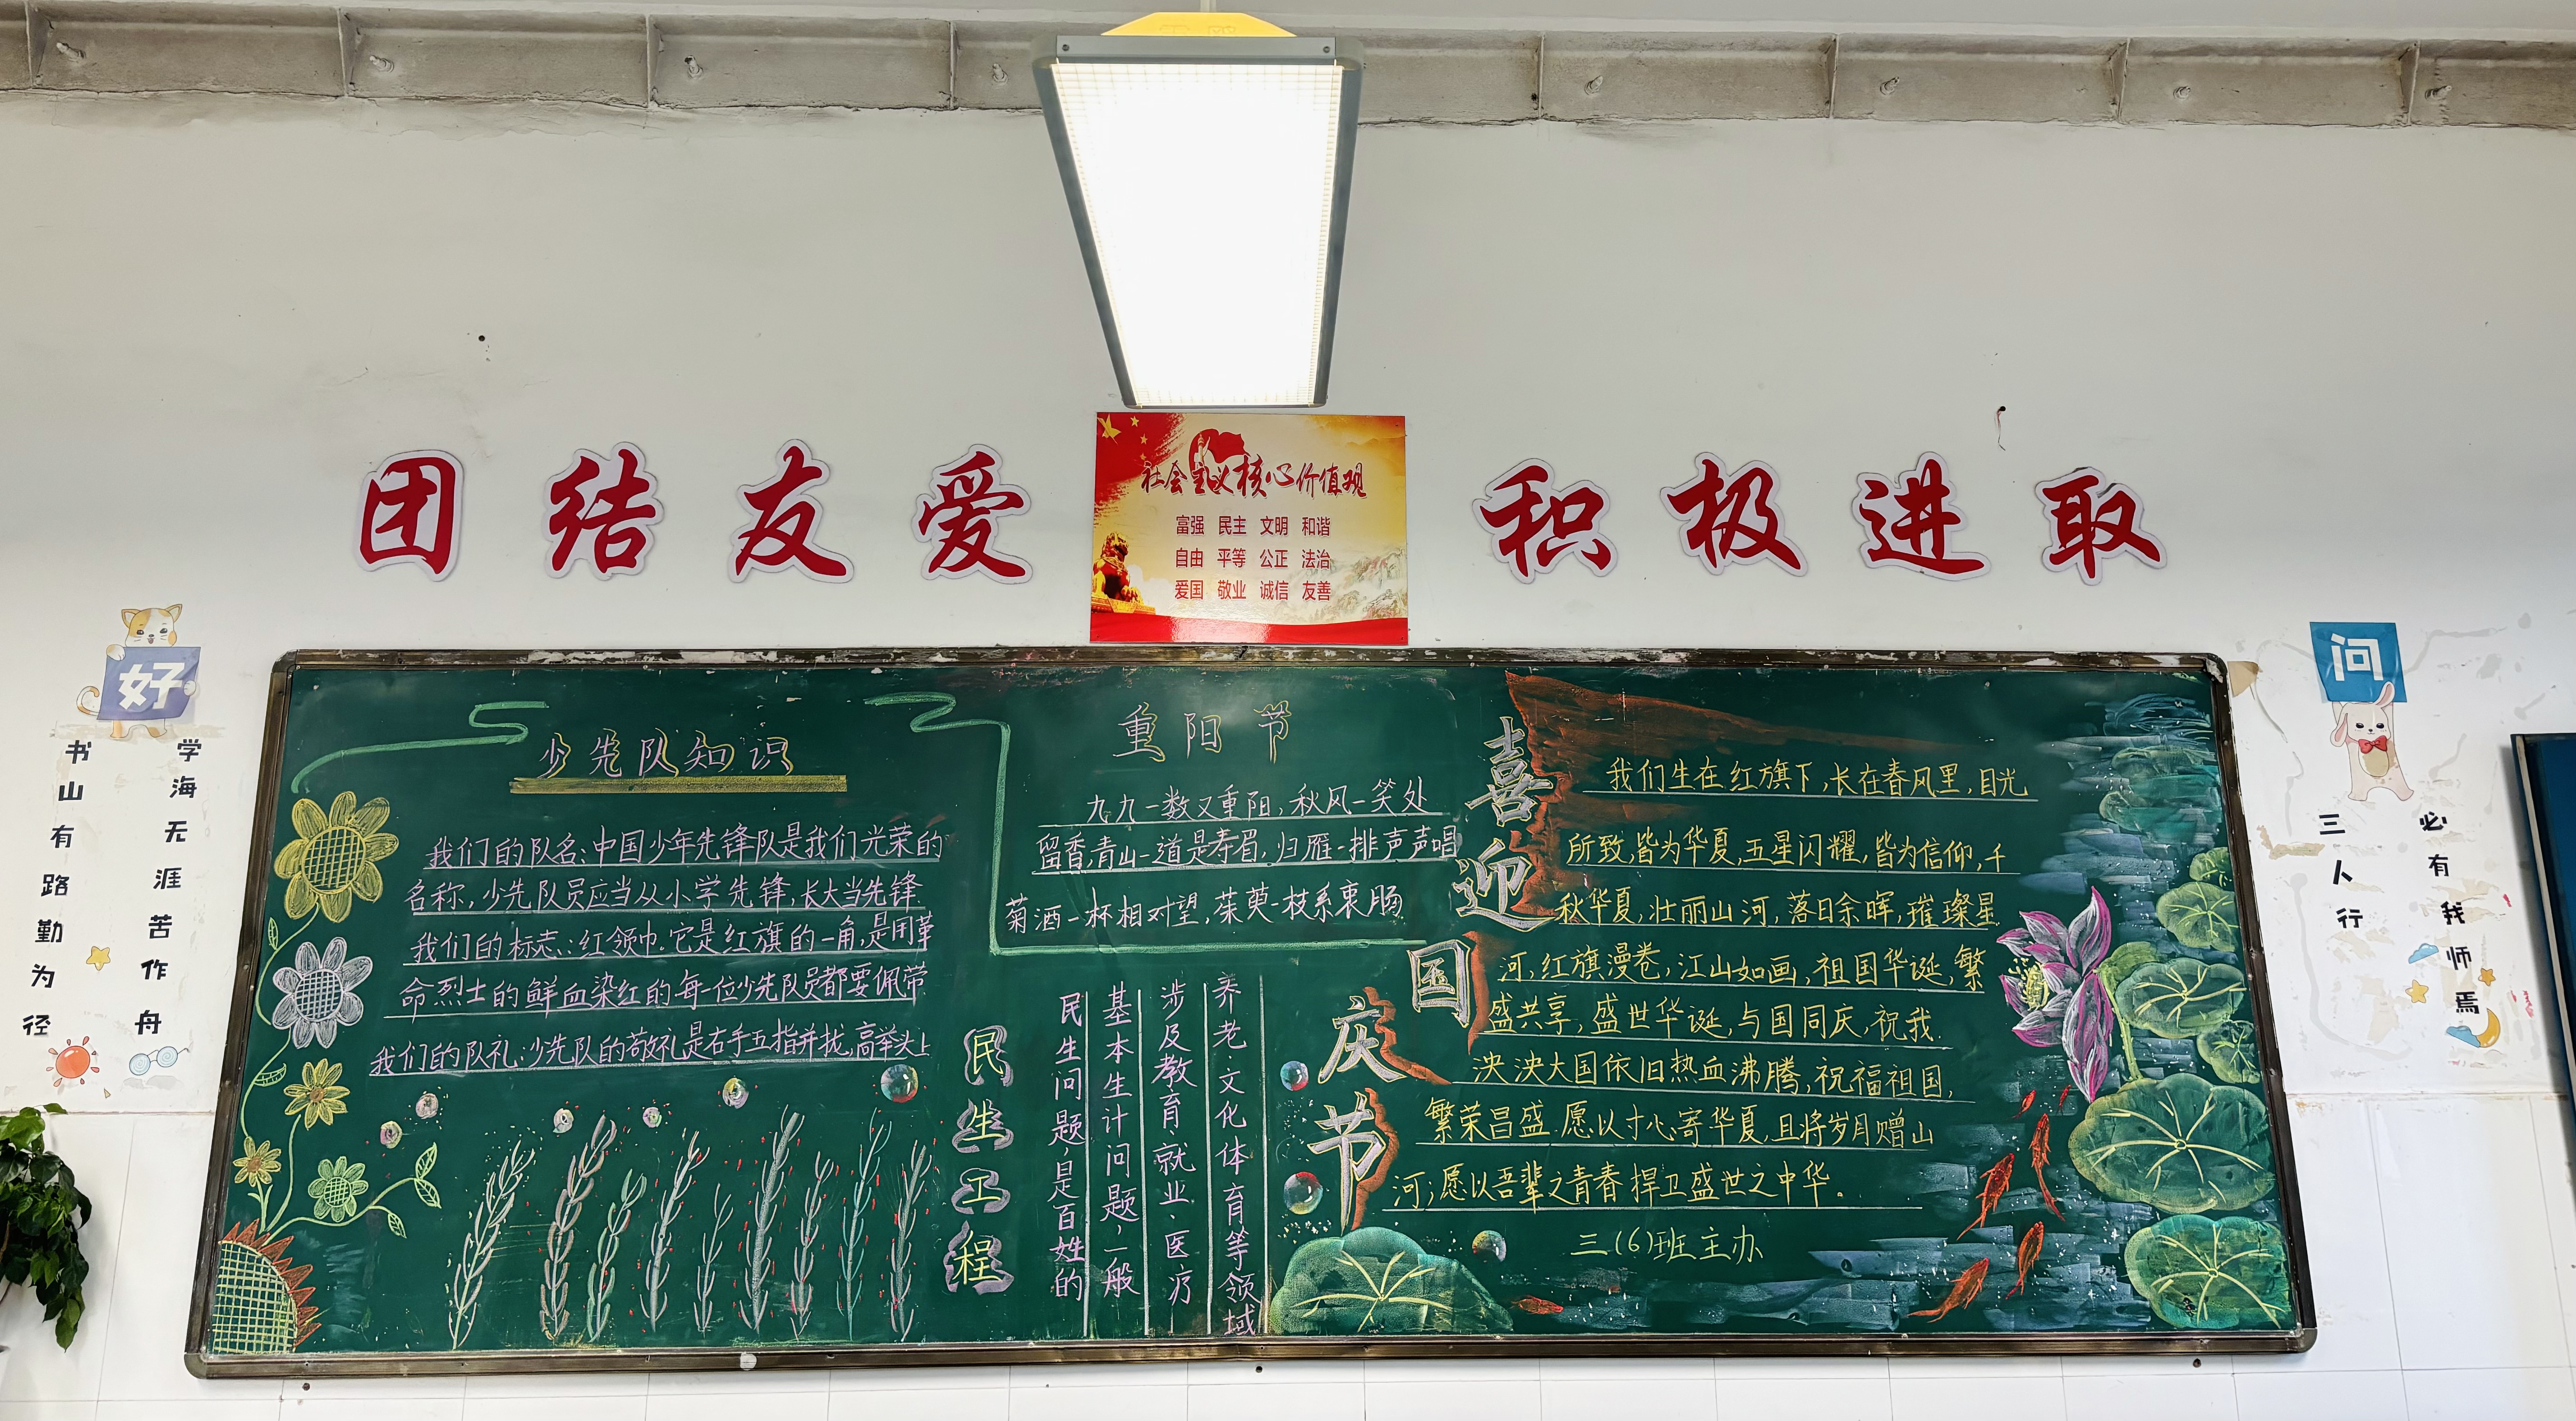 团结友爱
积极进取
社会主义核心价值观
富强 民主 文明 和谐
自由 平等 公正 法治
爱国 敬业 诚信 友善
好
书山有路勤为径
学海无涯苦作舟
问
三人行
必有我师焉
少先队知识
我们的队名:中国少年先锋队是我们光荣的
名称,少先队员应当从小学先锋,长大当先锋.
我们的标志:红领巾.它是红旗的一角,是用革
命烈士的鲜血染红的.每一位少先队员都要佩带
我们的队礼:少先队的敬礼是右手五指并拢,高举头上
重阳节
九九一数又重阳,秋风一笑处
留香,青山一道是寿眉,归雁一排声声唱
菊酒一杯相对望,茱萸一枝系衷肠
民生工程
民生问题,是百姓的
基本生计问题,一般
涉及教育、就业、医疗
养老、文化体育等领域
喜迎国庆节
我们生在红旗下,长在春风里,目光
所致,皆为华夏,五星闪耀,皆为信仰,千
秋华夏,壮丽山河,落日余晖,璀璨星
河,红旗漫卷,江山如画,祖国华诞,繁
盛共享,盛世华诞,与国同庆,祝我.
泱泱大国依旧热血沸腾,祝福祖国,
繁荣昌盛.愿以寸心寄华夏,且将岁月赠山
河;愿以吾辈之青春捍卫盛世之中华。
三(6)班主办